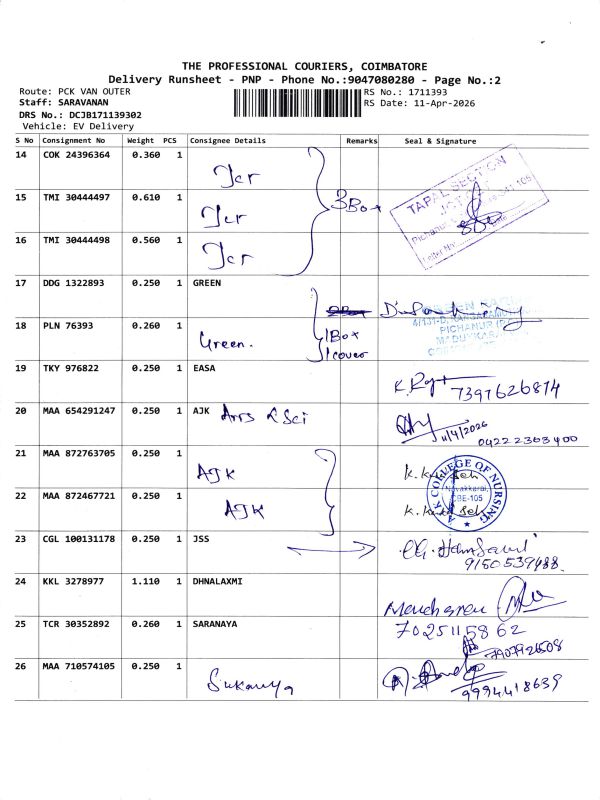 THE PROFESSIONAL COURIERS, COIMBATORE
Delivery Runsheet - PNP - Phone No.:9047080280 - Page No.:2
Route: PCK VAN OUTER
RS No.: 1711393
Staff: SARAVANAN
RS Date: 11-Apr-2026
DRS No.: DCJB171139302
Vehicle: EV Delivery
S No Consignment No Weight PCS Consignee Details Remarks Seal & Signature
14 COK 24396364 0.360 1 Jcr
15 TMI 30444497 0.610 1 Jcr 3 Box
16 TMI 30444498 0.560 1 Jcr
TAPAL SECTION
17 DDG 1322893 0.250 1 GREEN
18 PLN 76393 0.260 1 Green. 1 Box
1 cover
PICHANUR
19 TKY 976822 0.250 1 EASA K. 7397626874
20 MAA 654291247 0.250 1 AJK Arts & Sci 11/4/2026
04222363400
21 MAA 872763705 0.250 1 AJK
22 MAA 872467721 0.250 1 AJK
AJK COLLEGE OF NURSING
Navakkarai,
CBE-105
23 CGL 100131178 0.250 1 JSS
9150539488.
24 KKL 3278977 1.110 1 DHNALAXMI
25 TCR 30352892 0.260 1 SARANAYA 7025115862
7907926508
26 MAA 710574105 0.250 1 Sukanya
9994418639